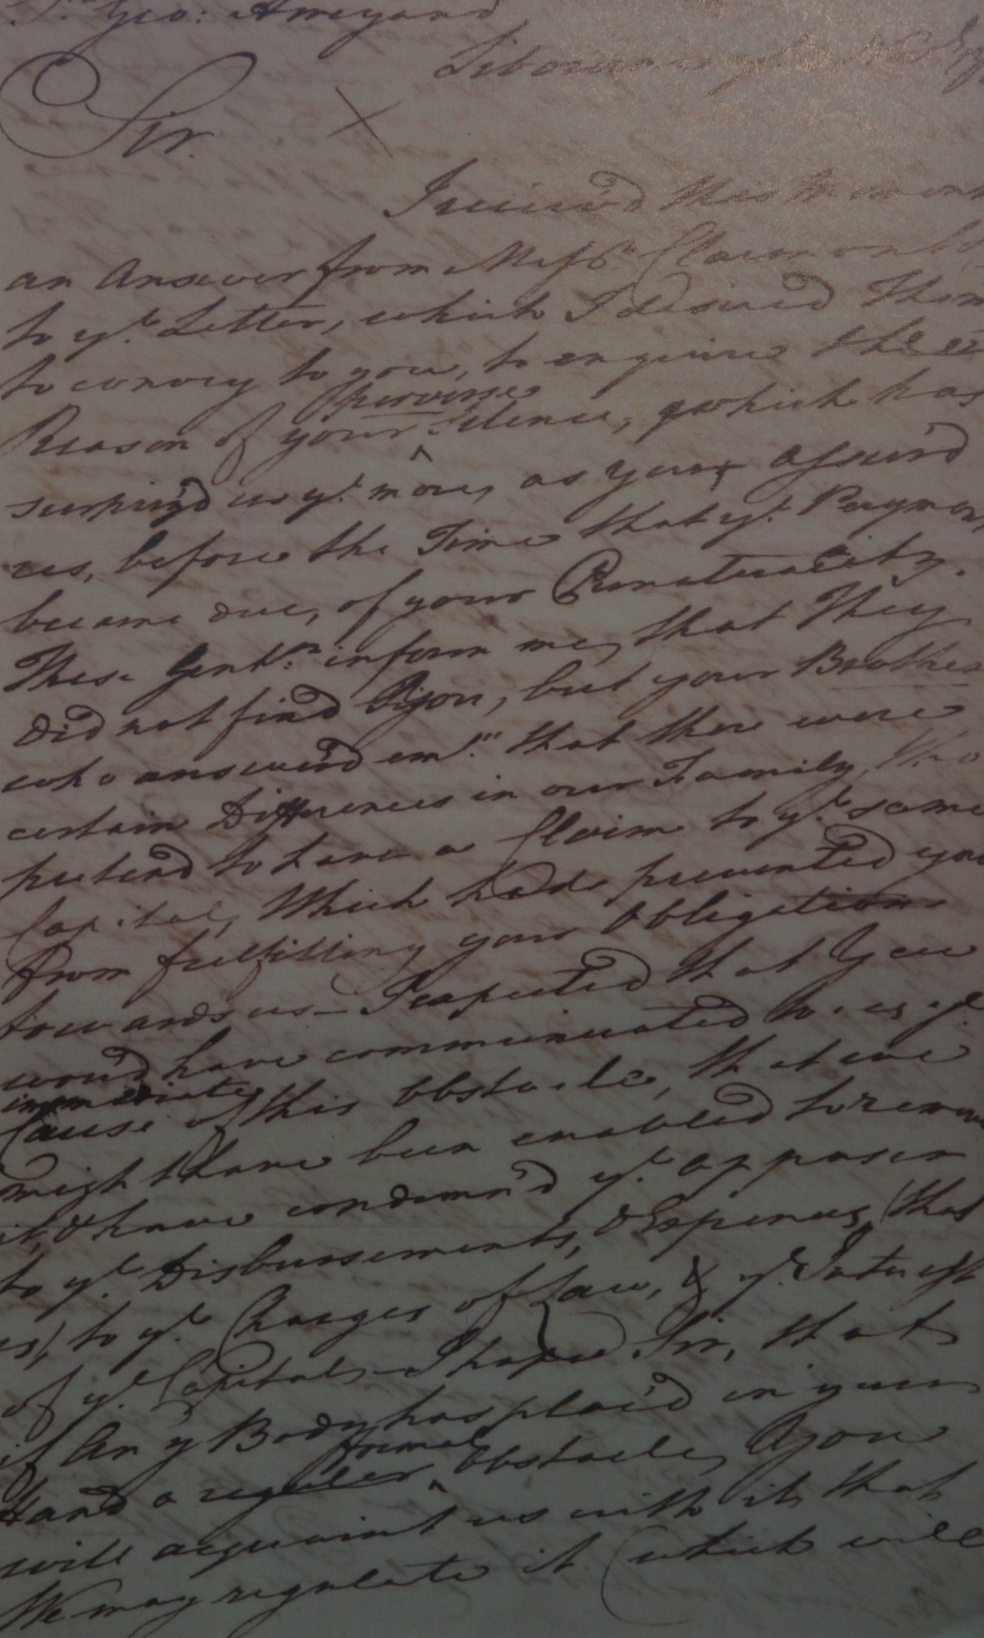 Geo: Amyand
Sir.
I receiv'd this Moment
an Answer from Mess.rs
to y.e Letter, which I desired them
to convey to you, to enquire the
perverse
Reason of your Silence, which has
surpriz'd us y.e more, as you assur'd
us, before the Time that y.e Payment
became due, of your Punctuality.
These Gent.n inform me, that They
did not find you, but your Brother
who answer'd em "that there were
certain Differences in our Family, who
pretend to have a Claim to y.e same
Capital, Which had prevented you
from fulfilling your Obligations
towards us — I expected that you
would have communicated to us y.e
immediate
Cause of this obstacle, that we
might have been enabled to remove
it, & have condemn'd y.e opposer
to y.e Disbursements, & Expences, (that
is,) to y.e Charges of Law, & y.e Interest
of y.e Capital — I hope Sir, that
if Any Body has plac'd in your
formal
hand a regular obstacle, you
will acquaint us with it, that
We may regulate it (which will